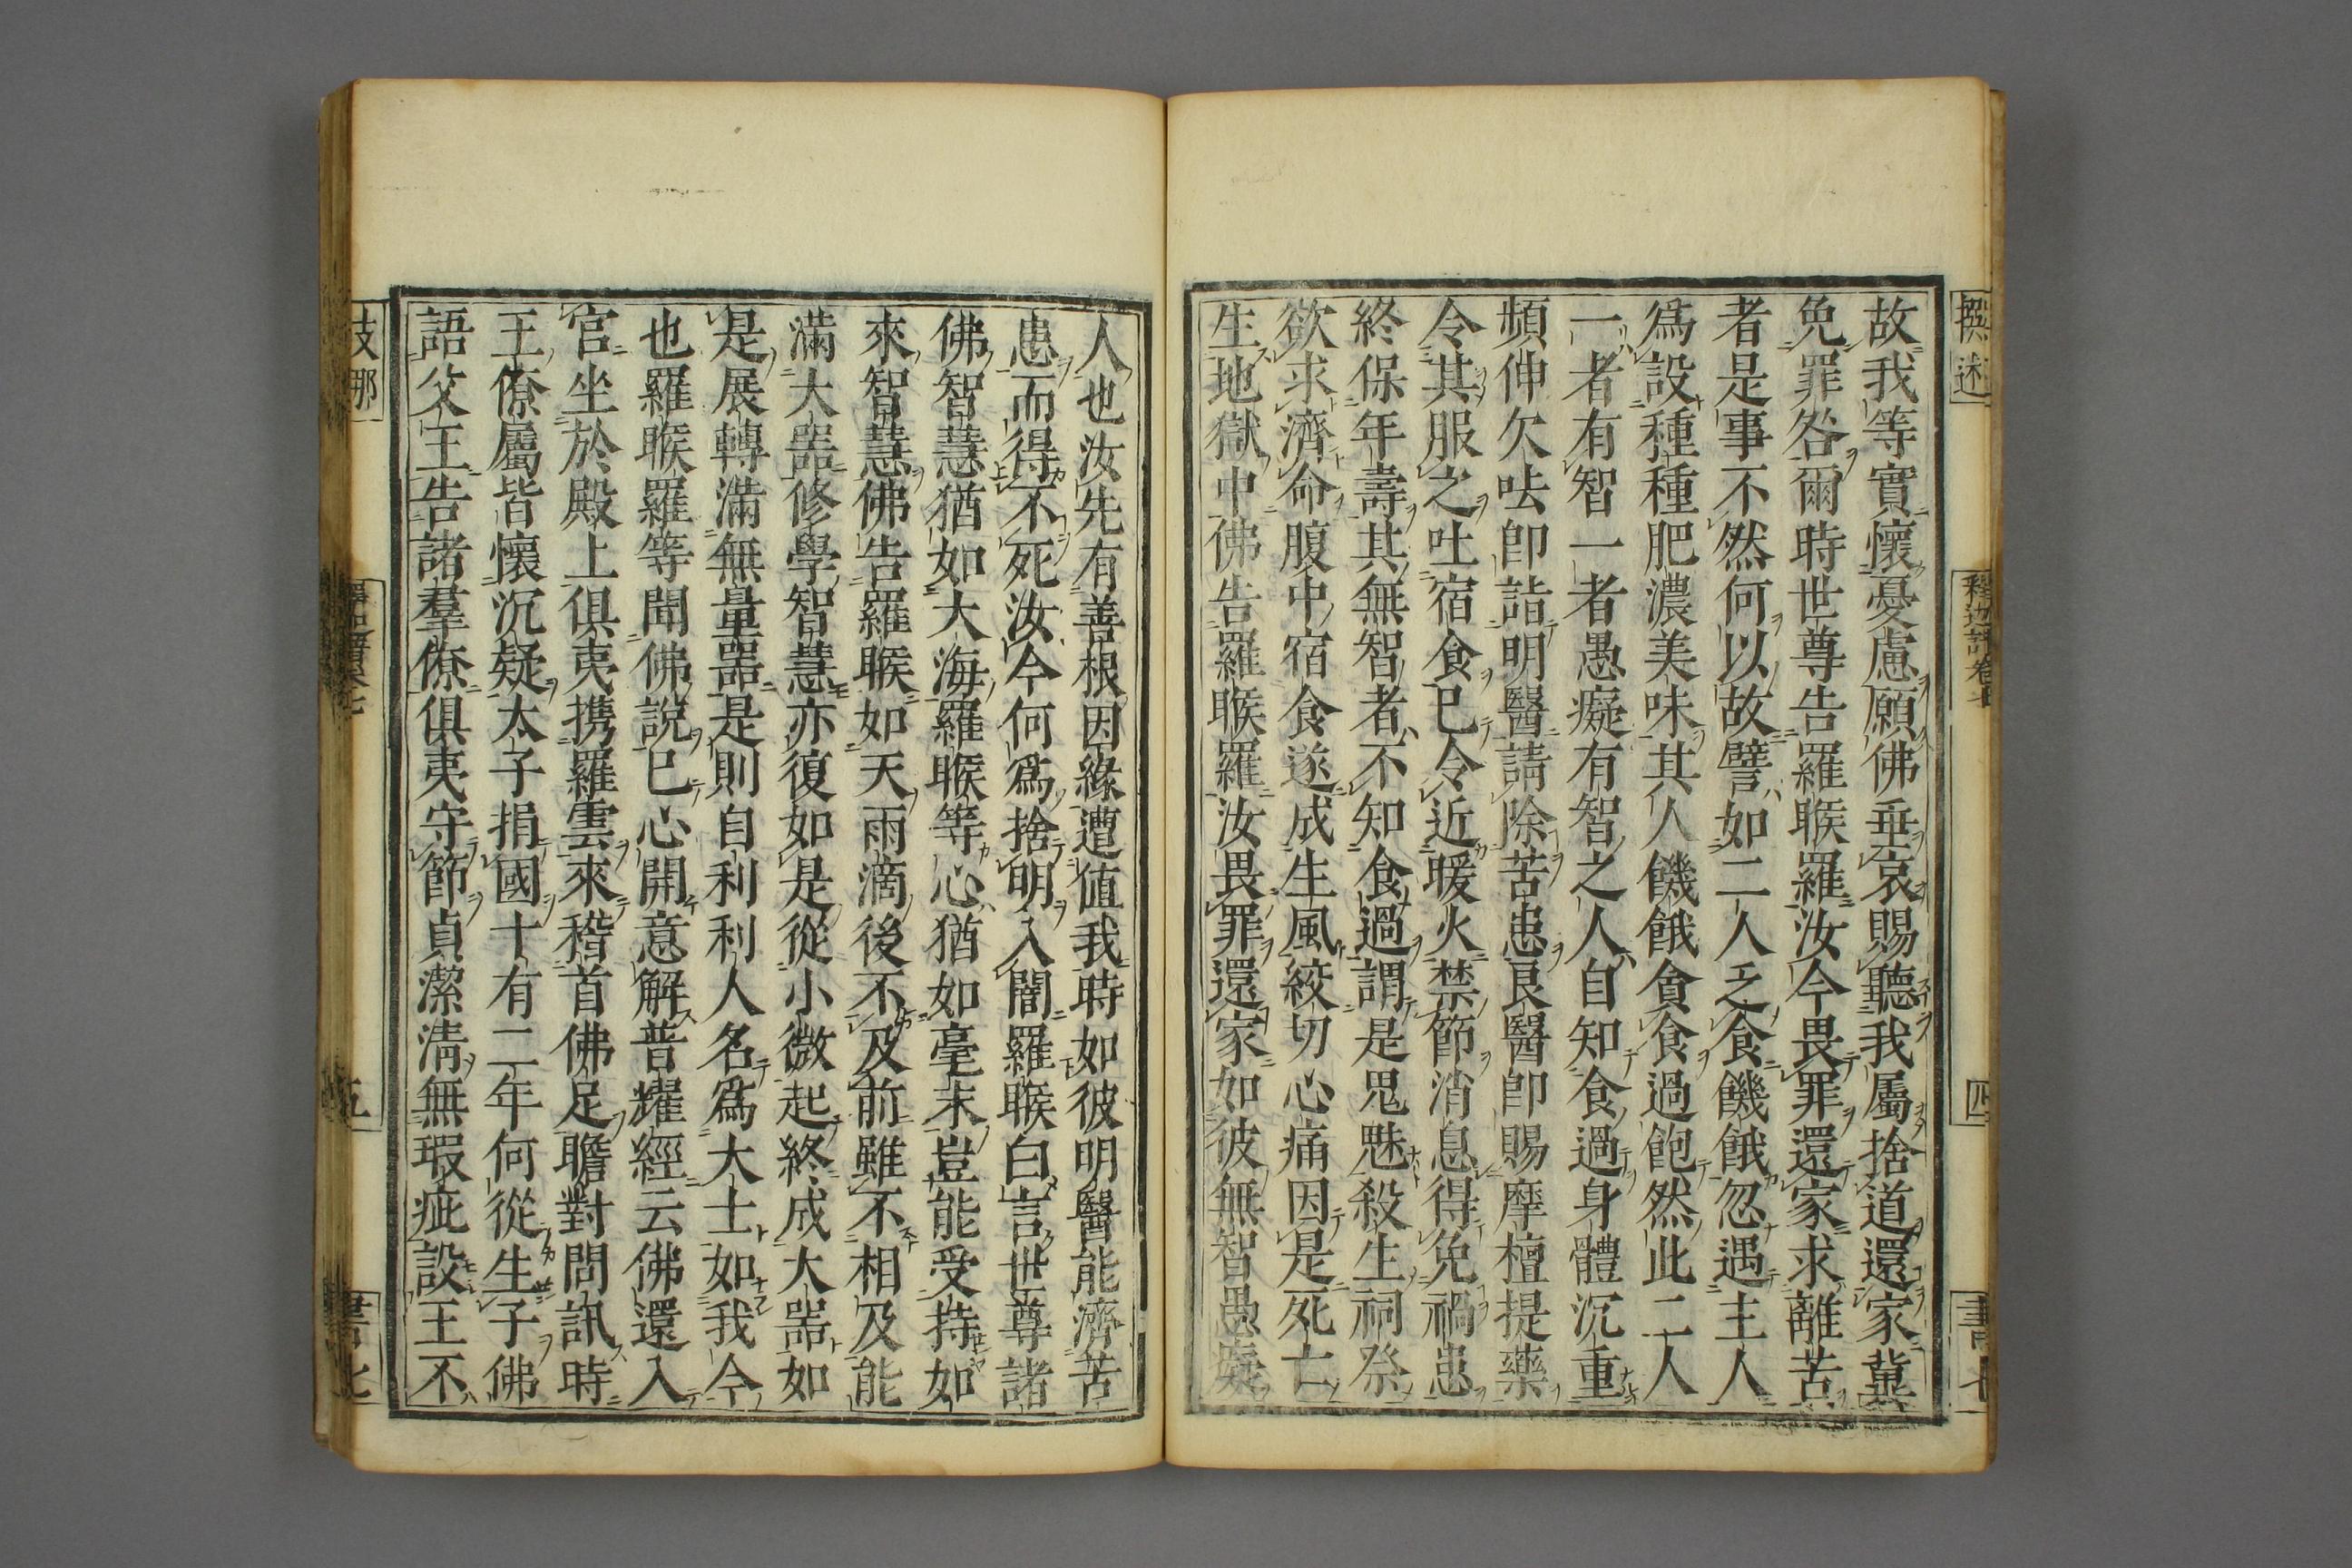 撰述
釋迦譜卷七
四
書七
故我等實懷憂慮願佛垂哀賜聽我屬捨道還家冀
免罪咎爾時世尊告羅睺羅汝今畏罪還家求離苦
者是事不然何以故譬如二人乏食饑餓忽遇主人
爲設種種肥濃美味其人饑餓貪食過飽然此二人
一者有智一者愚癡有智之人自知食過身體沉重
頻伸欠呿卽詣明醫請除苦患良醫卽賜摩檀提藥
令其服之吐宿食已令近暖火禁節消息得免禍患
終保年壽其無智者不知食過謂是鬼魅殺生祠祭
欲求濟命腹中宿食遂成生風絞切心痛因是死亡
生地獄中佛告羅睺羅汝畏罪還家如彼無智愚癡
人也汝先有善根因緣遭值我時如彼明醫能濟苦
患而得不死汝今何爲捨明入闇羅睺白言世尊諸
佛智慧猶如大海羅睺等心猶如毫末豈能受持如
來智慧佛告羅睺如天雨滴後不及前雖不相及能
滿大器修學智慧亦復如是從小微起終成大器如
是展轉滿無量器是則自利利人名爲大士如我今
也羅睺羅等聞佛說已心開意解普耀經云佛還入
宮坐於殿上俱夷携羅雲來稽首佛足瞻對問訊時
王僚屬皆懷沉疑太子捐國十有二年何從生子佛
語父王告諸羣僚俱夷守節貞潔清無瑕疵設王不
支那
五
書七